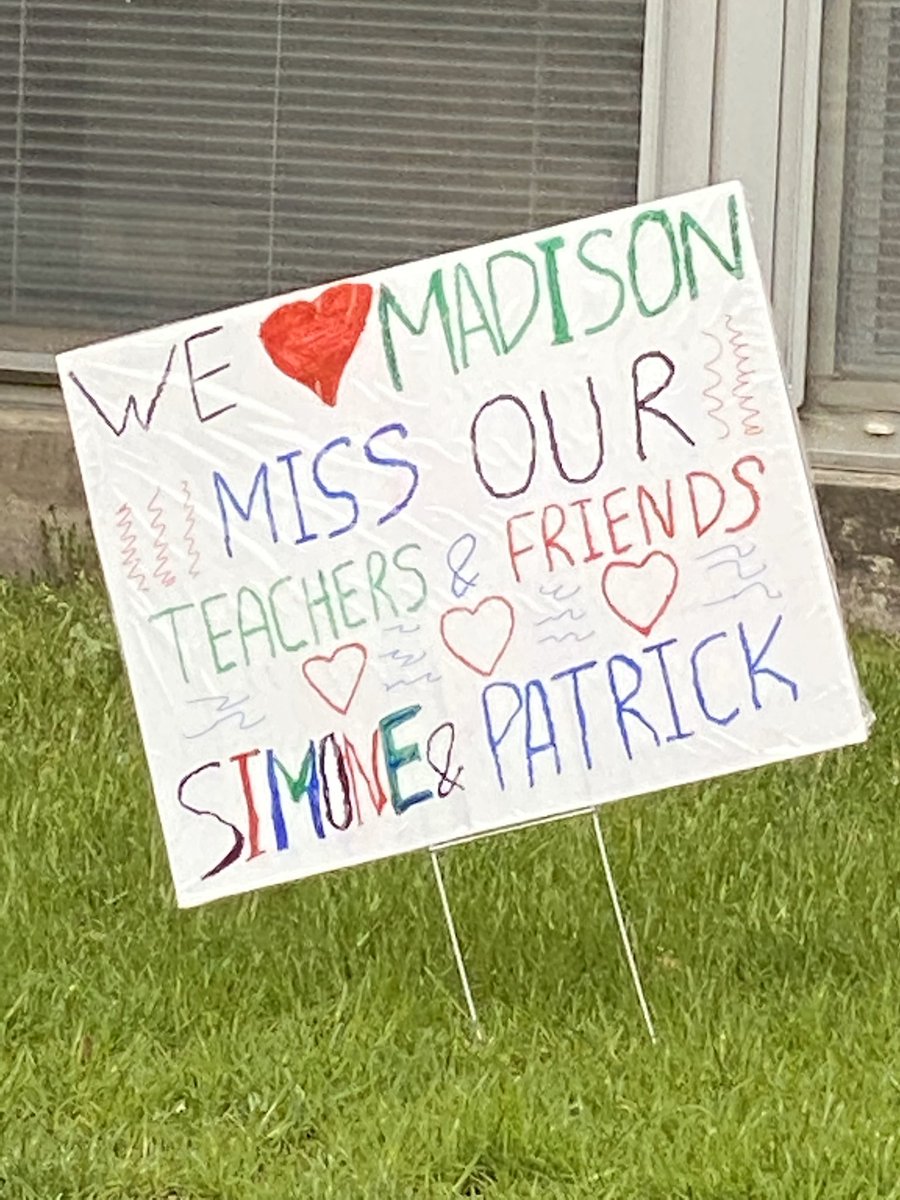 WE ❤ MADISON
MISS OUR
TEACHERS & FRIENDS
SIMONE & PATRICK